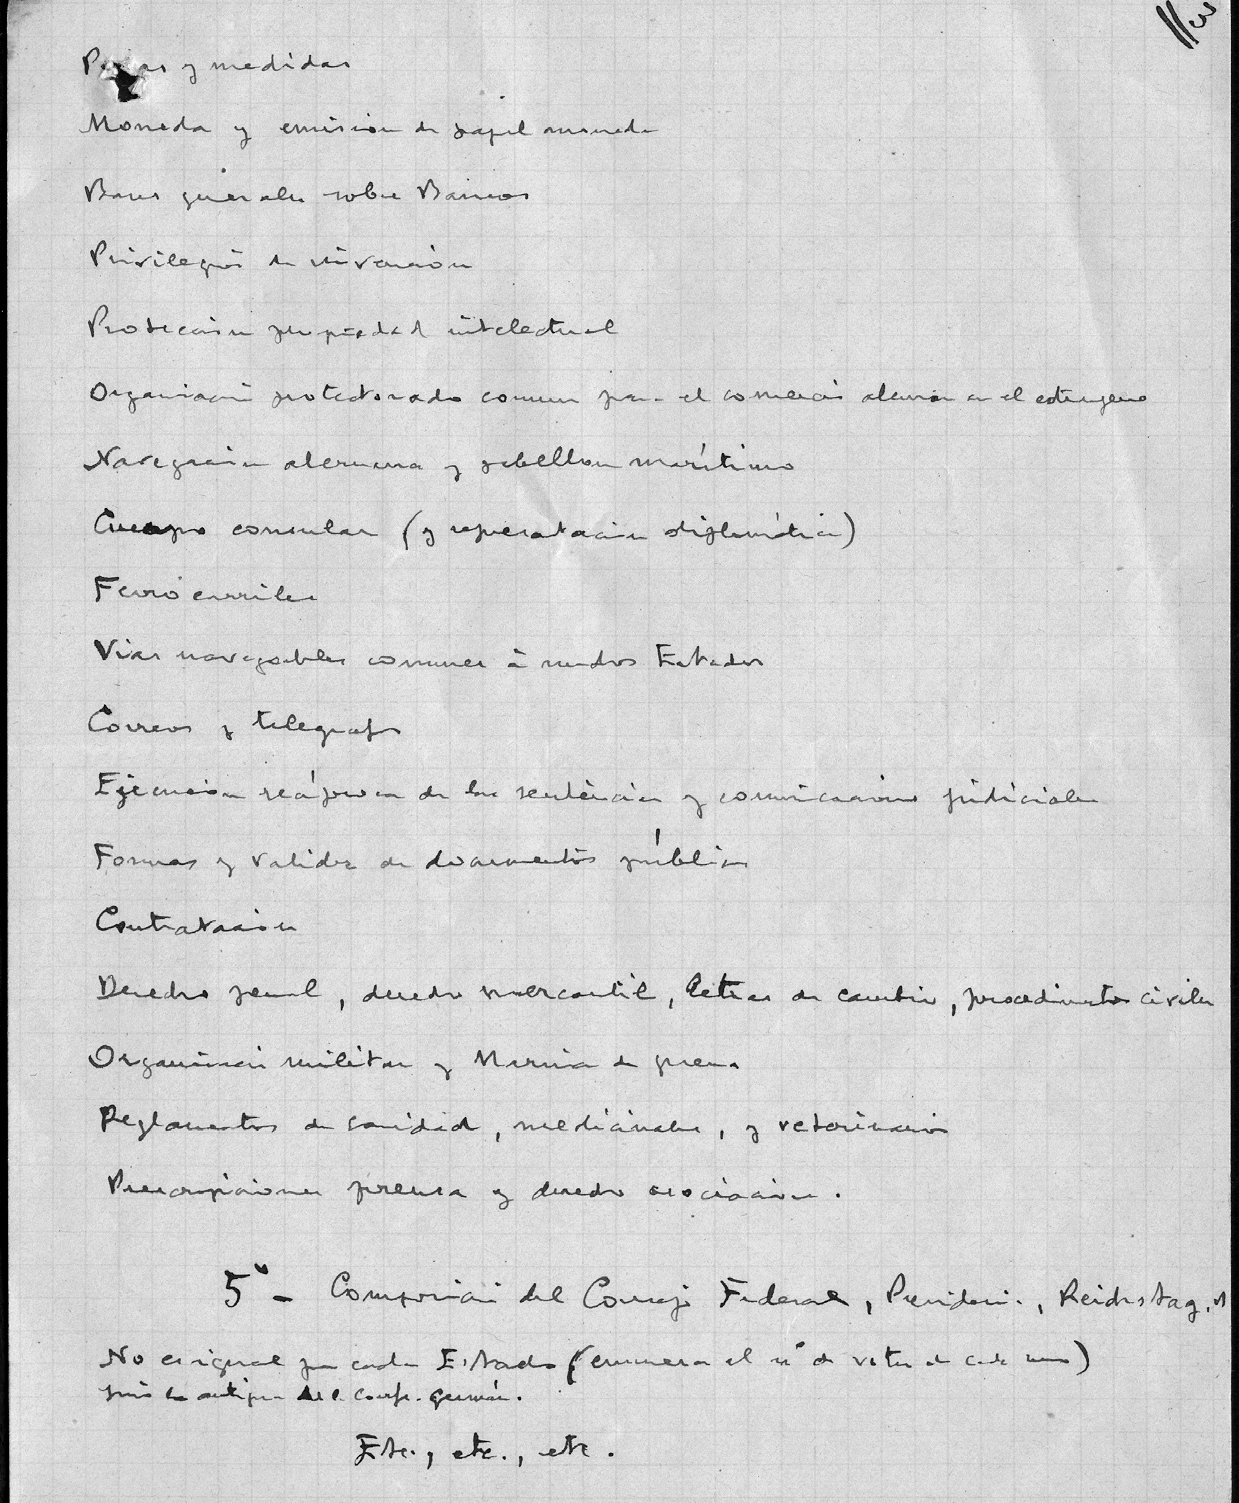 113
Pesas y medidas
Moneda y emisión de papel moneda
Bases generales sobre Bancos
Privilegios de invención
Protección propiedad intelectual
Organización protectorado comun para el comercio alemán en el extrangero
Navegación alemana y pabellon marítimo
Cuerpo consular (y representación diplomática)
Ferrocarriles
Vías navegables comunes à muchos Estados
Correos y telégrafos
Ejecución recíproca de las sentencias y comunicaciones judiciales
Formas y validez de documentos públicos
Contratación
Derecho penal, derecho mercantil, letras de cambio, procedimientos civiles
Organización militar y Marina de guerra
Reglamentos de sanidad, medicinales, y veterinarios
Prescripciones prensa y derecho asociación.
5º - Composición del Consejo Federal, Presidencia, Reichstag,
No es igual para cada Estado (enumera el nº de votos de cada uno)
antigua conf. germán.
Etc., etc., etc.